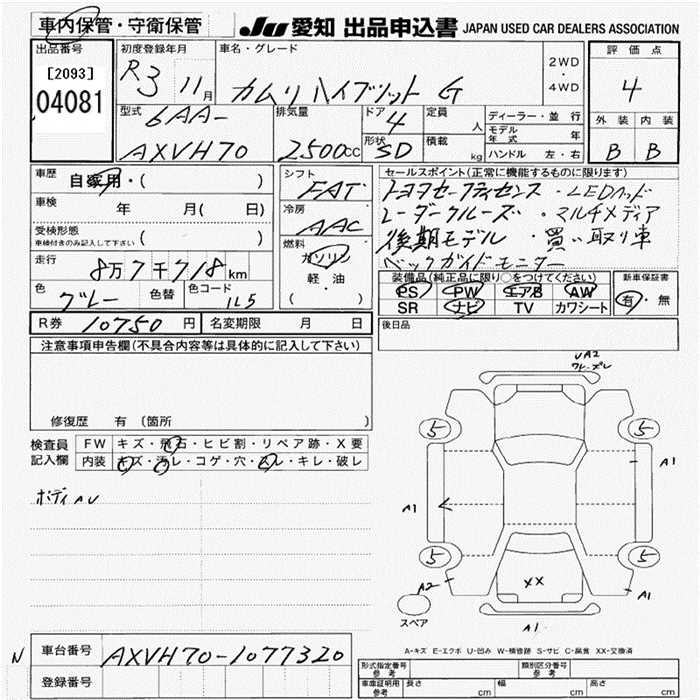 車内保管・守衛保管
JU 愛知 出品申込書 JAPAN USED CAR DEALERS ASSOCIATION
出品番号
[2093]
04081
初度登録年月
R3 11月
車名・グレード
カムリ ハイブリット G
2WD
・
4WD
評価点
4
外装 内装
B B
型式
6AA-
AXVH70
排気量
2500cc
ドア
4
形状
SD
定員
人
積載
kg
ディーラー・並行
モデル年式 年
ハンドル 左・右
車歴
自家用・( )
車検 年 月( 日)
受検形態
車検付きのみ記入して下さい ( )
走行
8万7千718km
色
グレー
色替
色コード
1L5
シフト
FAT
冷房
AAC
燃料
ガソリン
軽・油
( )
セールスポイント(正常に機能するものに限ります)
トヨタセーフティセンス・LEDヘッド
レーダークルーズ・マルチメディア
後期モデル・買い取り車
バックガイドモニター
装備品(純正品に限り○をつけてください)
PS PW エアB AW
SR ナビ TV カワシート
新車保証書
有・無
後日品
R券 10750 円
名変期限 月 日
注意事項申告欄(不具合内容等は具体的に記入して下さい)
修復歴 有 (箇所 )
検査員記入欄
FW キズ・飛石・ヒビ割・リペア跡・X要
内装 キズ・汚レ・コゲ・穴・スレ・キレ・破レ
ボディAU
UA2
5
5
A1
A1
5
5
A2
XX
A1
スペア
A1
A-キズ E-エクボ U-凹み W-補修跡 S-サビ C-腐食 XX-交換済
N
車台番号 AXVH70-1077320
登録番号
形式指定番号
参考
類別区分番号
参考
車庫証明用
参考
長さ cm
幅 cm
高さ cm